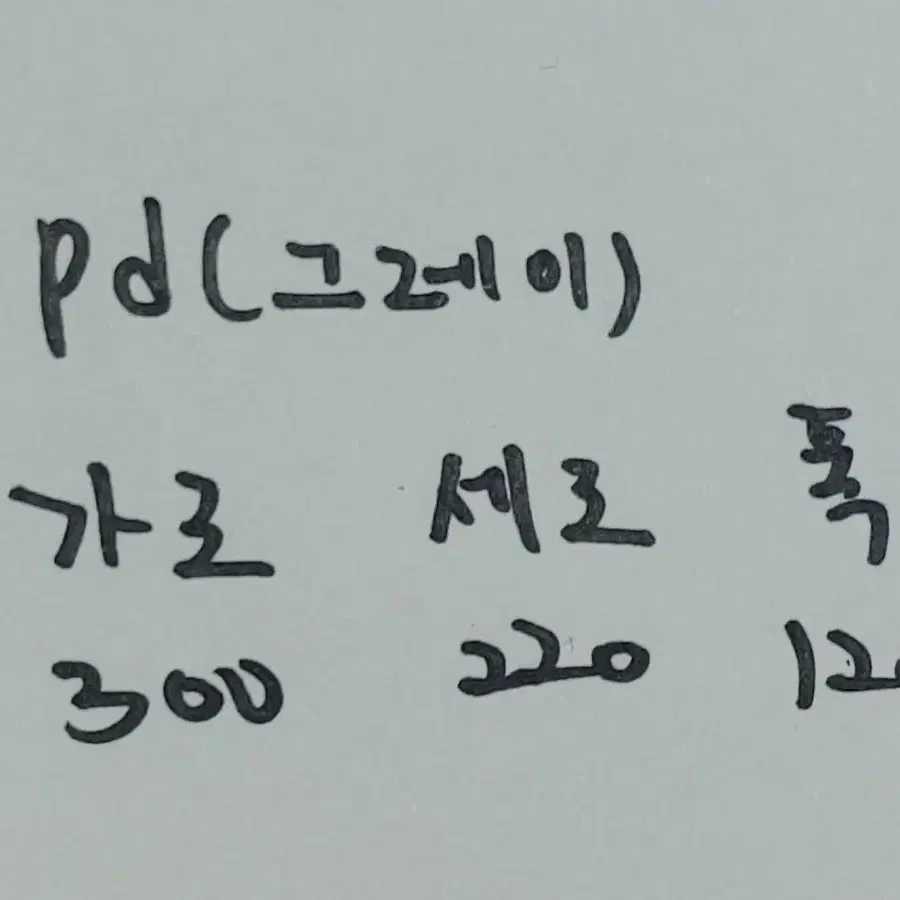 pd(그레이)
가로 세로 폭
300 220